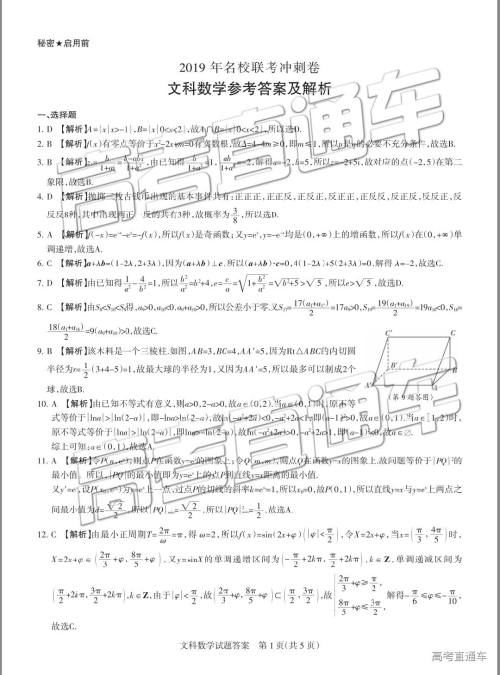 秘密★启用前
2019 年名校联考冲刺卷
文科数学参考答案及解析
一、选择题
1. D 【解析】A={x|x>-1},B={x|0<x<2},故A∩B={x|0<x<2},所以选D.
2. B 【解析】f(x)有零点等价于x²-2x+m=0有实数根,故Δ=4-4m≥0,即m≤1,所以p是q的必要不充分条件,故选B.
3. B 【解析】 由已知得 解得a=-2,b=5,所以z=-2+5i,故对应的点(-2,5)在第二
象限,故选B.
4. D 【解析】抛掷三枚古钱币出现的基本事件共有:正正正,正正反,正反正,反正正,正反反,反正反,反反正,反
反反8种,其中出现两正一反的共有3种,故概率为3/8,所以选D.
5. A 【解析】f(-x)=e⁻ˣ-eˣ=-f(x),所以f(x)是奇函数;又y=eˣ,y=-e⁻ˣ均是(0,+∞)上的增函数,所以f(x)在(0,+∞)单
调递增,故选A.
6. C 【解析】a+λb=(1-2λ,2+3λ),因为(a+λb)⊥c,所以(a+λb)·c=0,4(1-2λ)+5(2+3λ)=0,解得λ=-2,故选C.
7. D 【解析】由已知得1/a²-4/b²=1,所以b²/a²=b²+4,e=c/a=√(1+b²/a²)=√(b²+5)>√5,所以e>√5,故选D.
8. C 【解析】 所以公差小于零.又S₁₇=17(a₁+a₁₇)/2=17a₉>0,S₁₉=19(a₁+a₁₉)/2=19a₁₀<0,S₁₈=
18(a₁+a₁₈)/2=9(a₉+a₁₀)>0,故选C.
9. B 【解析】该木料是一个三棱柱.如图,AB=3,BC=4,AA'=5,因为Rt△ABC的内切圆
半径为r=1/2(3+4-5)=1,故最大球的半径为1,又因为AA'=5,所以最多可以制成2个
球,故选B.
C' B' A' C B A
(第9题答图)
10. A 【解析】由已知不等式有意义,则a>0,2-a>0,故a∈(0,2).当a∈(0,1)时,原不等
式等价于|lna|>|ln(2-a)|,即-lna>ln(2-a),故ln(-a²+2a)<0,-a²+2a<1,即(a-1)²>0,故a∈(0,1).当a∈[1,2)时,
原不等式等价于|lna|>|ln(2-a)|,即lna>-ln(2-a),故ln(-a²+2a)>0,-a²+2a>1,即(a-1)²<0,故a∈∅.
综上可知:a∈(0,1),故选A.
11. A 【解析】令P(n,eⁿ),则点P在函数y=eˣ的图象上;令Q(m,m),则点Q在函数y=x的图象上.故问题等价于|PQ|²的
最小值. 所以,|PQ|的最小值即为y=eˣ上的点P到直线y=x距离的最小值.
又y'=eˣ,设P(x₀,eˣ⁰)为y=eˣ上一点,过点P的切线的斜率k=eˣ⁰=1,所以x₀=0,故P(0,1),所以直线y=x与y=eˣ上两点之
间最小值为d=√2/2.所以|PQ|ₘᵢₙ=√2/2,所以|PQ|²ₘᵢₙ=1/2.故选A.
12. C 【解析】由最小正周期T=2π/ω=π,得ω=2,所以f(x)=sin(2x+φ)(|φ|<π/2),令X=2x+φ,当x∈(π/3,4π/5)时,
X=2x+φ∈(2π/3+φ,8π/5+φ).又y=sinX的单调递增区间为(-π/2+2kπ,π/2+2kπ),k∈Z.单调递减区间为
(π/2+2kπ,3π/2+2kπ),k∈Z,由于|φ|<π/2,故(2π/3+φ,8π/5+φ)⊂(π/2,3π/2),故{2π/3+φ≥π/2, 8π/5+φ≤3π/2, 解得-π/6≤φ≤-π/10,
故选C.
文科数学试题答案 第1页(共5页)
高考直通车
高考直通车
高考直通车